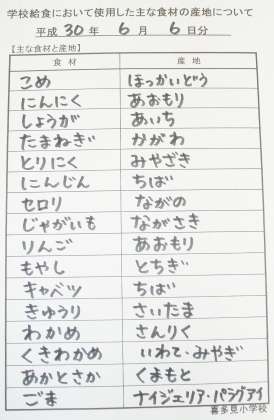 学校給食において使用した主な食材の産地について
平成 30 年 6 月 6 日分
【主な食材と産地】
食材 産地
こめ ほっかいどう
にんにく あおもり
しょうが あいち
たまねぎ かがわ
とりにく みやざき
にんじん ちば
セロリ ながの
じゃがいも ながさき
りんご あおもり
もやし とちぎ
キャベツ ちば
きゅうり さいたま
わかめ さんりく
くきわかめ いわて・みやぎ
あかとさか くまもと
ごま ナイジェリア・パラグアイ
喜多見小学校